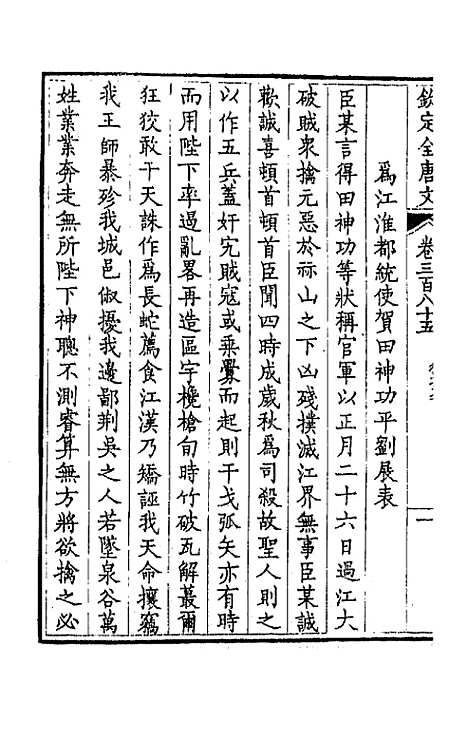 欽定全唐文
卷三百八十五
一
爲江淮都統使賀田神功平劉展表
臣某言得田神功等狀稱官軍以正月二十六日過江大
破賊衆擒元惡於祢山之下凶殘撲滅江界無事臣某誠
歡誠喜頓首頓首臣聞四時成歲秋爲司殺故聖人則之
以作五兵蓋奸宄賊寇或乘釁而起則干戈弧矢亦有時
而用陛下率遏亂畧再造區宇欃槍旬時竹破瓦解蕞爾
狂狡敢干天誅作爲長蛇薦食江漢乃矯誣我天命攘竊
我王師暴殄我城邑俶擾我邊鄙荆吳之人若墜泉谷萬
姓業業奔走無所陛下神聰不測睿算無方將欲擒之必